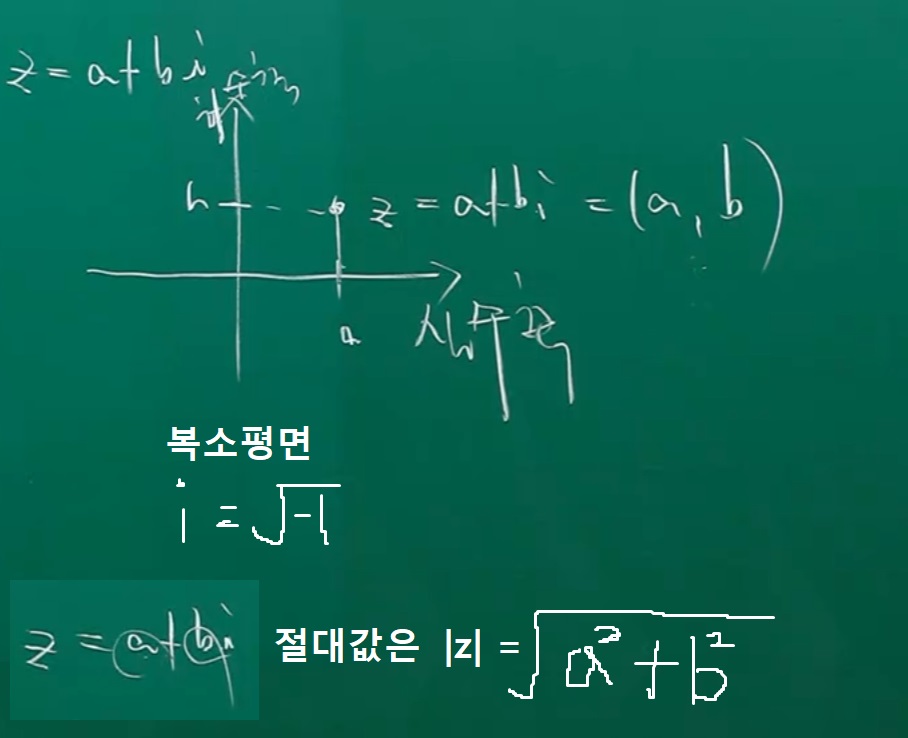 z = a + bi
허수축
b
z = a + bi = (a, b)
a
실수축
복소평면
i = √-1
z = a + bi 절대값은 |z| = √a² + b²